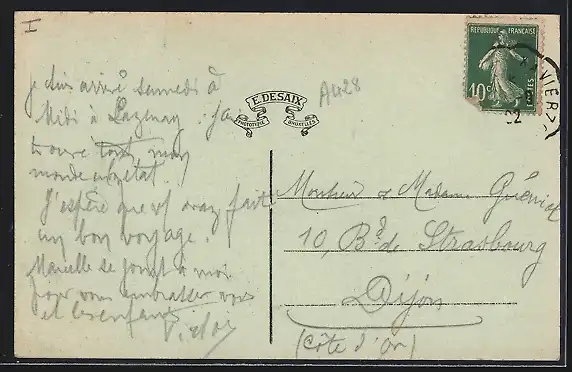 I
je suis arrivé samedi à
Midi à Lazenay. J'ai
trouvé tout mon
monde en état.
J'espère que vs avez fait
un bon voyage.
Marcelle se joint à moi
pour vous embrasser vous
et les enfants
E. DESAIX
PHOTOTYPIE BRUXELLES
A428
REPUBLIQUE FRANÇAISE
10c POSTES
VIERZ
Monsieur & Madame
10, Bd de Strasbourg
Dijon
(Côte d'Or)